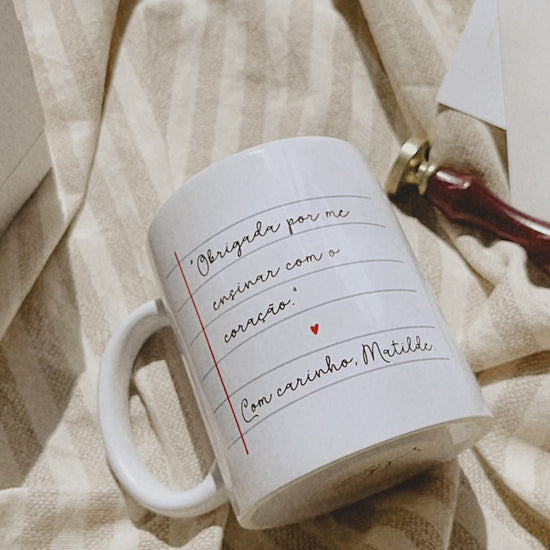 "Obrigada por me
ensinar com o
coração."
Com carinho, Matilde.